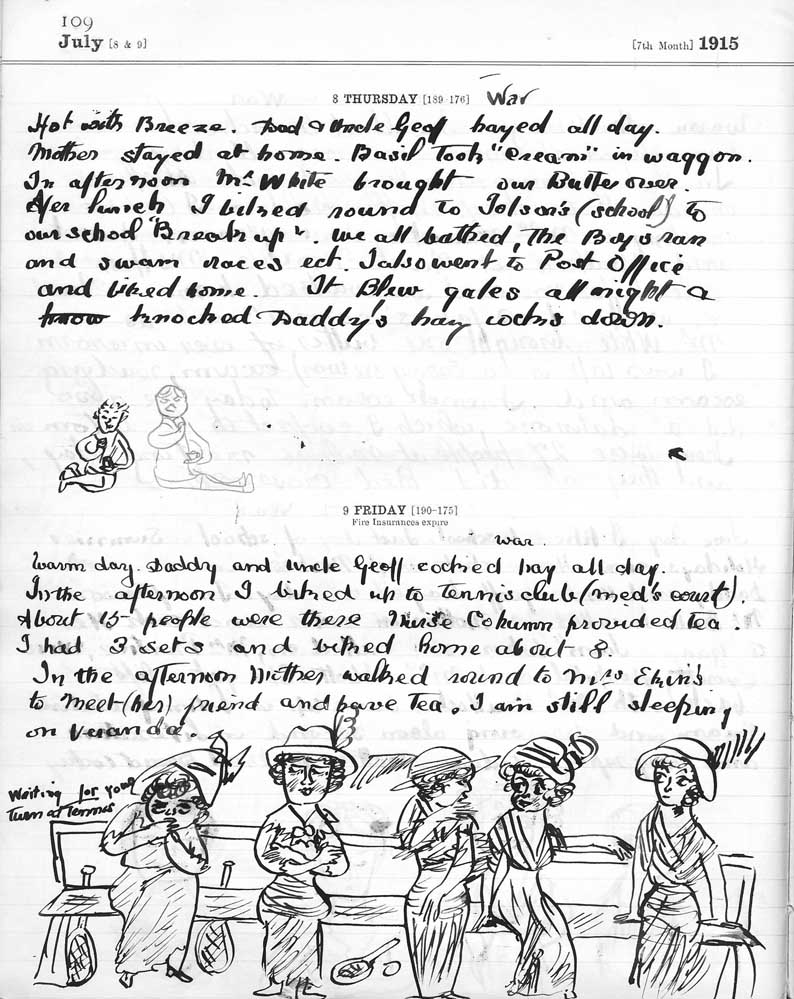 109
July [8 & 9] [7th Month] 1915
8 THURSDAY [189-176] War
Hot with Breeze. Dad & Uncle Geoff hayed all day.
Mother stayed at home. Basil Took "Cream" in waggon.
In afternoon Mrs White brought our Butter over.
After lunch I biked round to Tolson's (school) to
our school "Break up". We all bathed, The Boys ran
and swam races ect. I also went to Post Office
and biked home. It Blew gales all night &
knocked Daddy's hay cocks down.
9 FRIDAY [190-175]
Fire Insurances expire
War.
Warm day. Daddy and Uncle Geoff cocked hay all day.
In the afternoon I biked up to Tennis club (Med's court).
About 15 people were there Nurse Column provided tea.
I had 3 sets and biked home about 8.
In the afternoon Mother walked round to Mrs Ekins
to meet (her) friend and have Tea. I am still sleeping
on veranda.
Waiting for your
Turn at Tennis